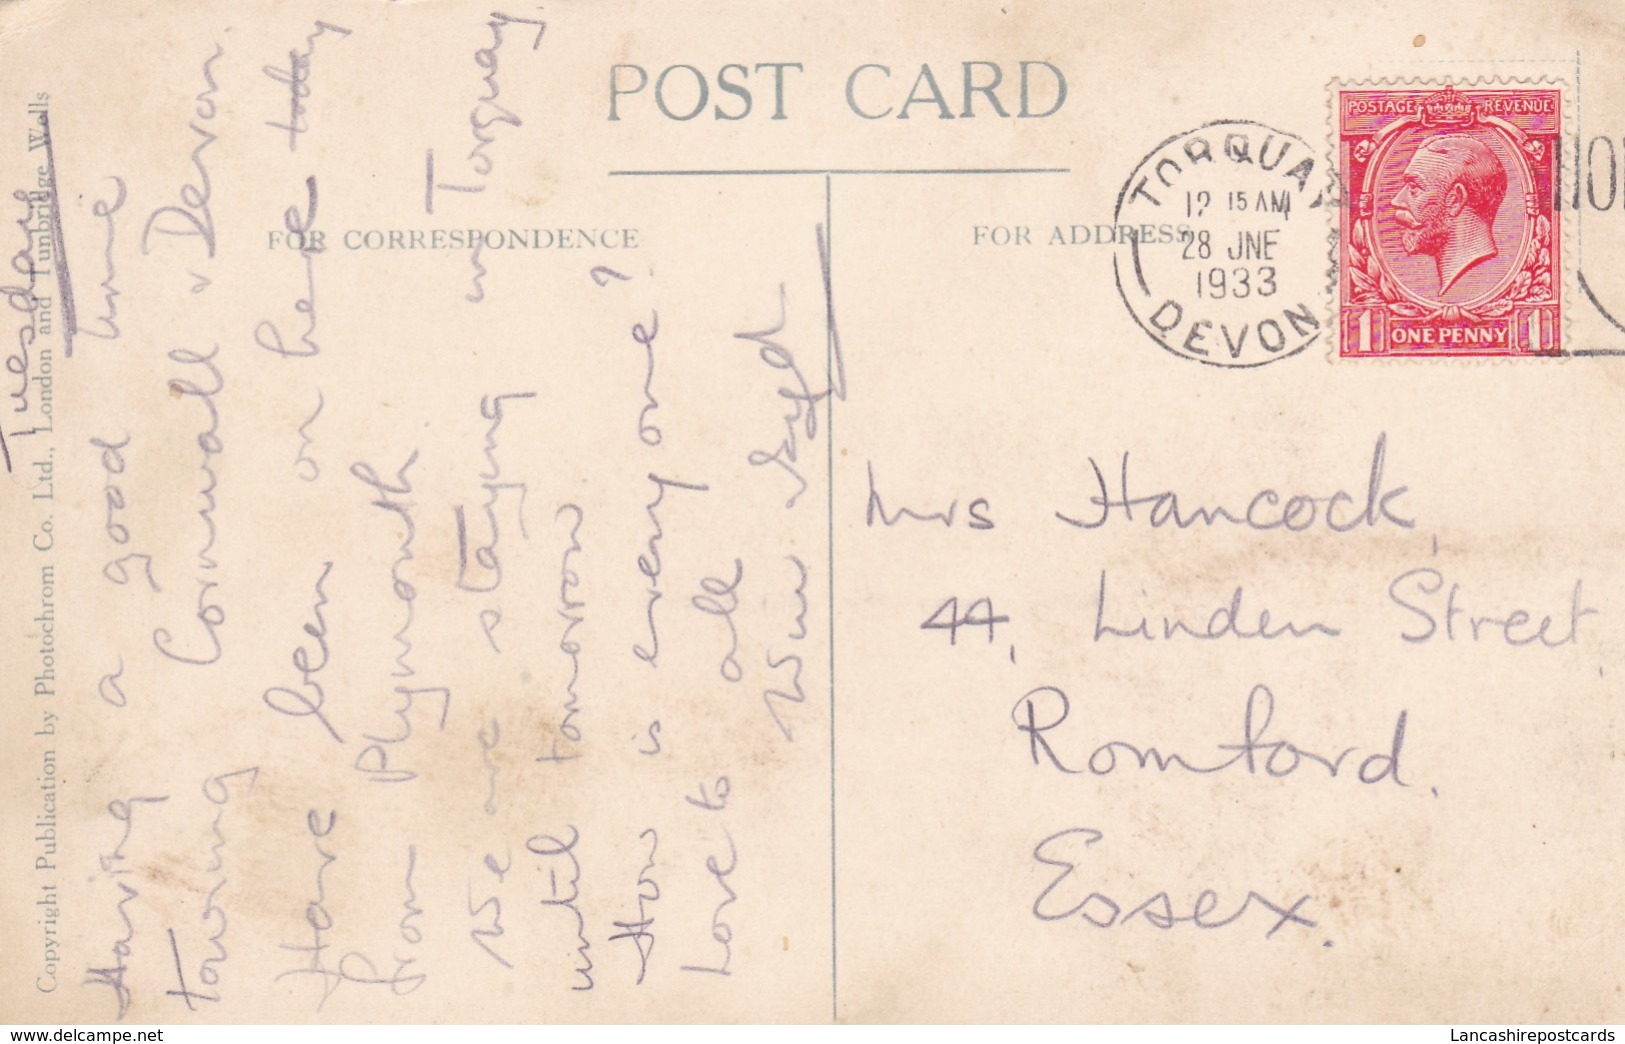 POST CARD
FOR CORRESPONDENCE
FOR ADDRESS
Copyright Publication by Photochrom Co. Ltd., London and Tunbridge Wells
Tuesday
Having a good time
towing Cornwall & Devon.
Have been on here today
from Plymouth
We are staying in Torquay
until tomorrow
How is every one?
Love to all
Win
TORQUAY
12 15 AM
28 JNE
1933
DEVON
POSTAGE REVENUE
1 ONE PENNY 1
Mrs Hancock,
44, Linden Street,
Romford.
Essex.
www.delcampe.net
Lancashirepostcards